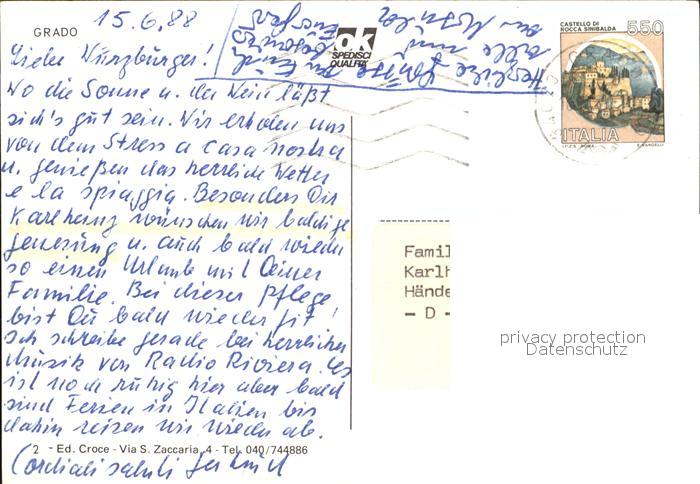 15.6.88
GRADO
Liebe Würzburger!
Wo die Sonne u. der Wein läßt
sich's gut sein. Wir erholen uns
von dem Stress a casa nostra
u. genießen das herrliche Wetter
e la spiaggia. Besonders Dir
Karlheinz wünschen wir baldige
Genesung u. auch bald wieder
so einen Urlaub mit Deiner
Familie. Bei dieser Pflege
bist Du bald wieder fit!
Ich schreibe gerade bei herrlicher
Musik von Radio Riviera. Es
ist noch ruhig hier aber bald
sind Ferien in Italien bis
dahin reisen wir wieder ab.
2 - Ed. Croce - Via S. Zaccaria, 4 - Tel. 040/744886
Cordiali saluti
Herzliche Grüße
ok
SPEDISCI
QUALITÀ
CASTELLO DI
ROCCA SINIBALDA
550
ITALIA
I.P.Z.S. ROMA
E. VANGELLI
Famil
Karlh
Hände
- D -
privacy protection
Datenschutz